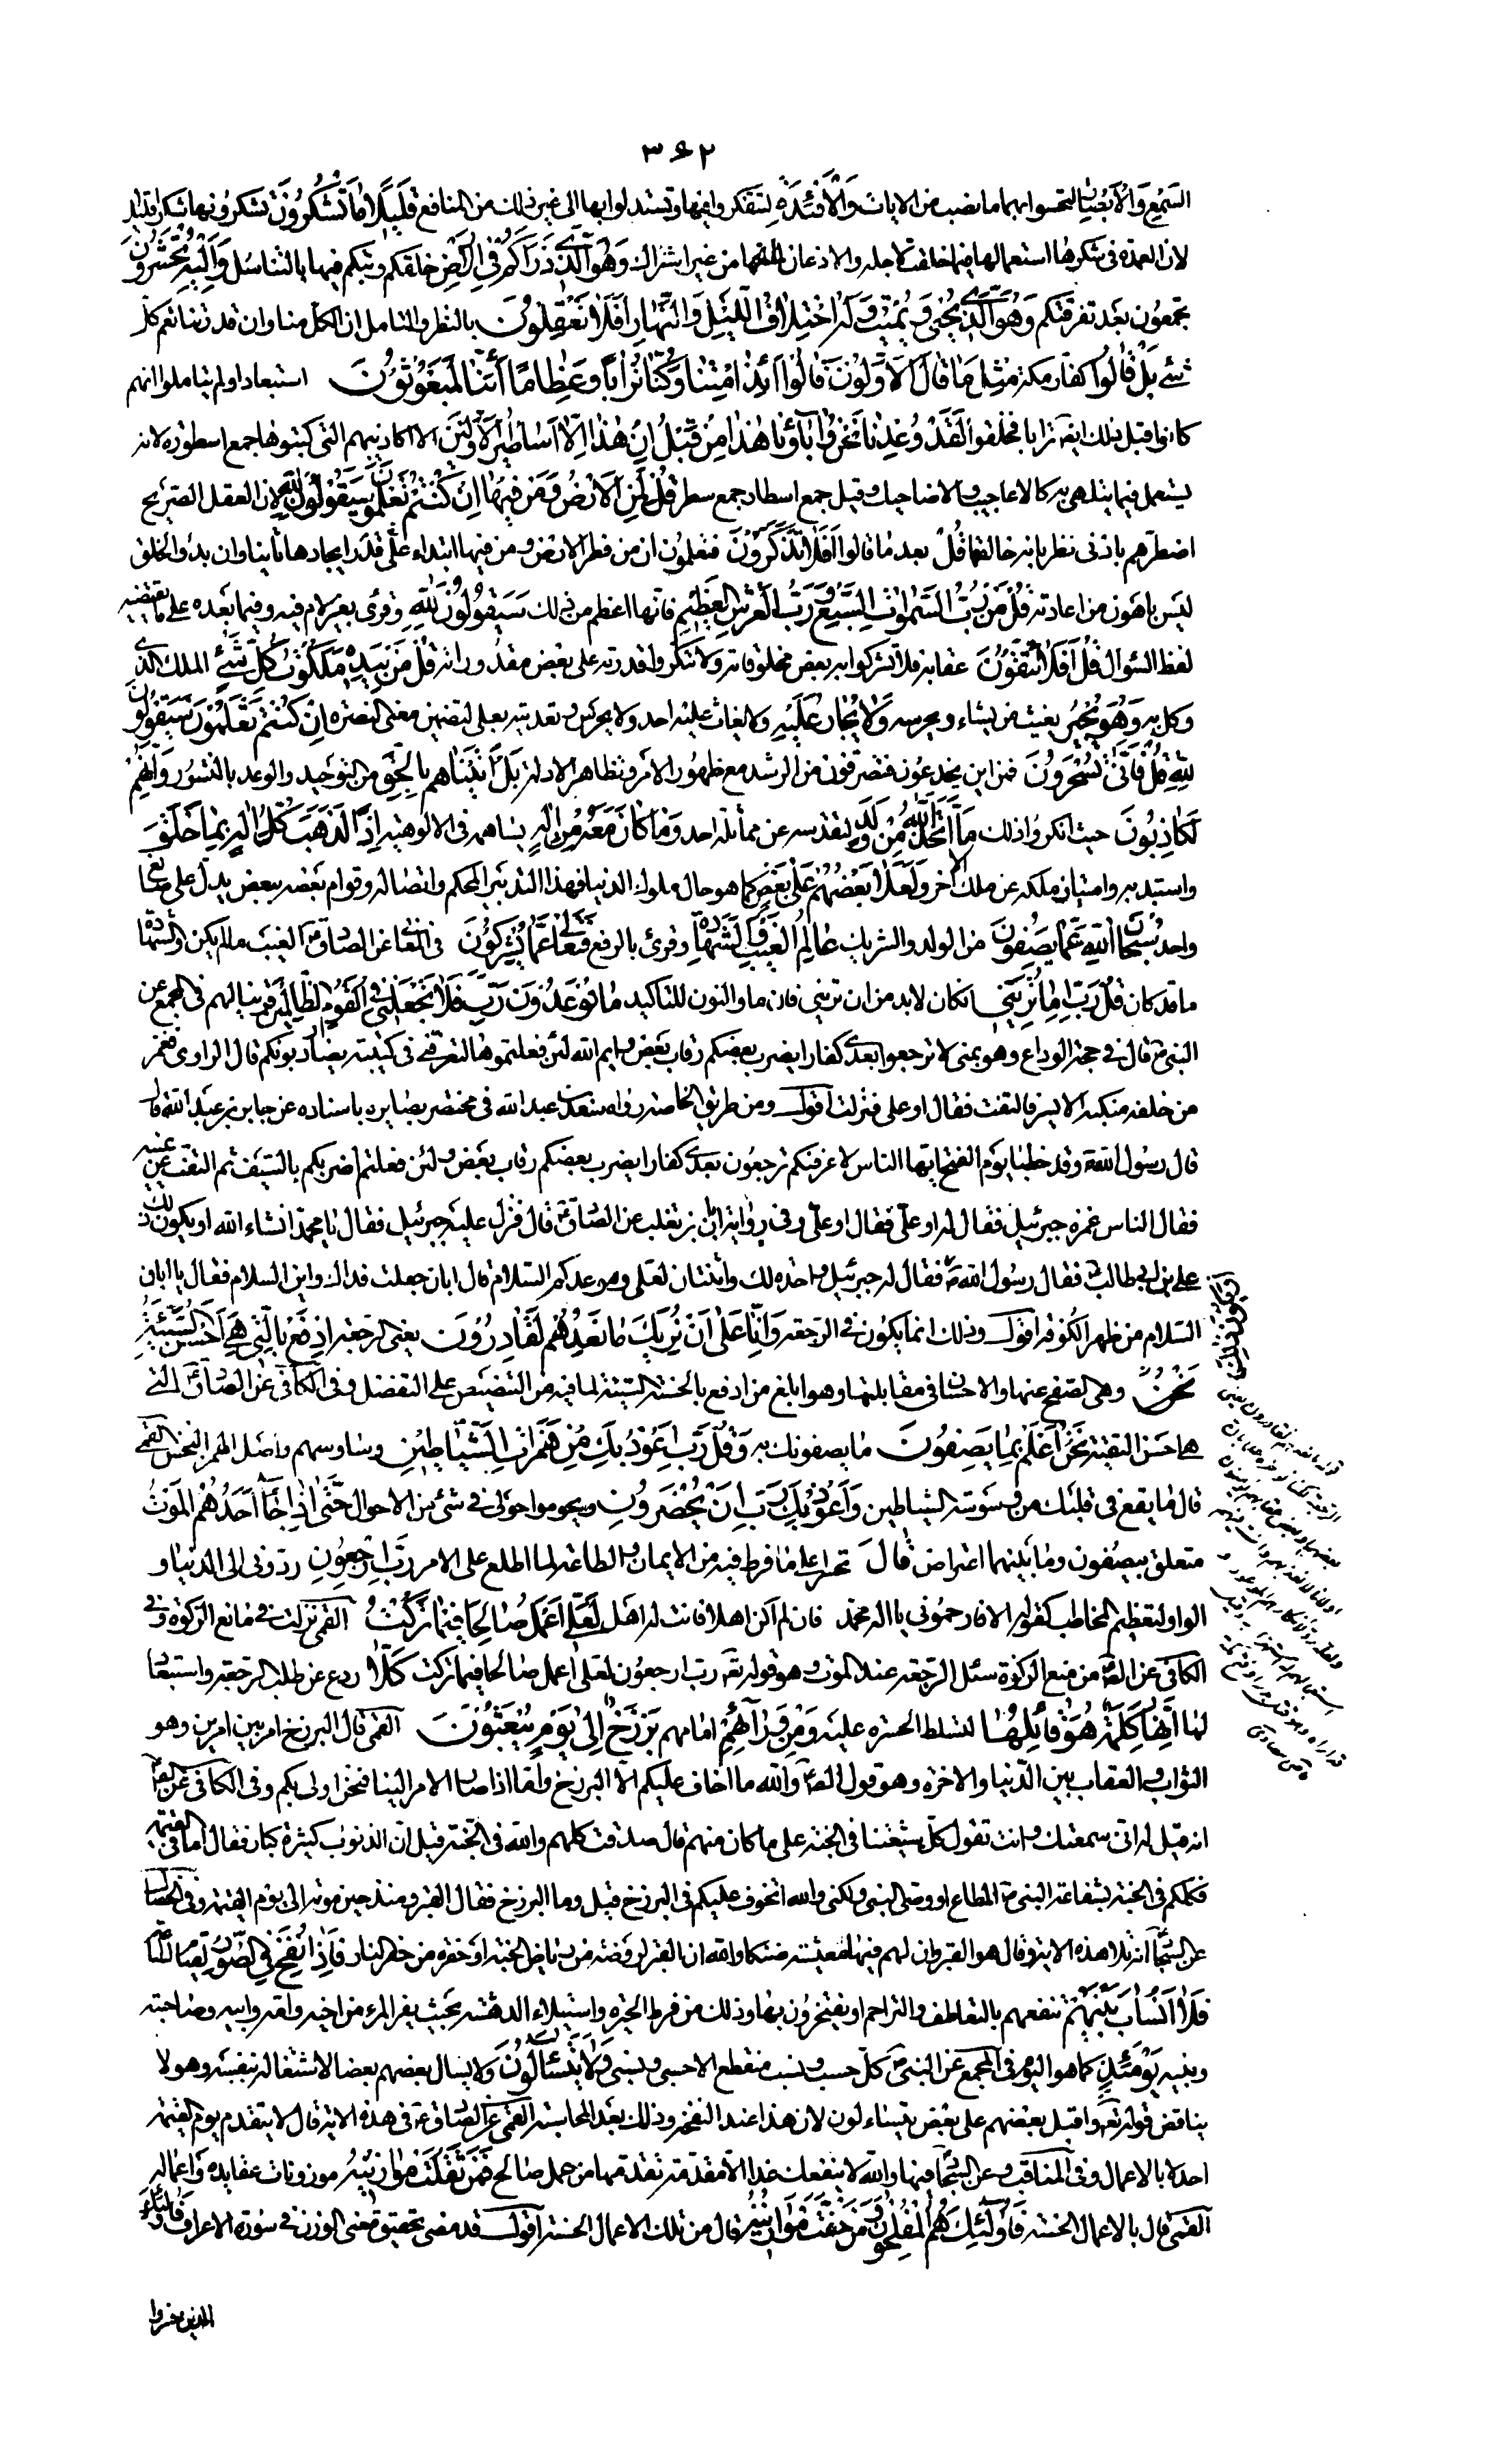 ٣٩٢
السَّمْعَ وَالْاَبْصٰارَ لتحسّوا بهما ما نصب من الايات وَالْاَفْئِدَةَ لتتفكروا فيها وتستدلوا بها الى غير ذلك من المنافع قَلِيلًا مٰا تَشْكُرُونَ تشكرونها شكرا قليلا
لان العمدة فى شكرها استعمالها فيما خلقت لاجله والاذعان لمانحها من غير اشراك وَهُوَ الَّذِي ذَرَاَكُمْ فِي الْاَرْضِ خلقكم وبثكم فيها بالتناسل وَاِلَيْهِ تُحْشَرُونَ
تجمعون بعد تفرقتكم وَهُوَ الَّذِي يُحْيِي وَيُمِيتُ وَلَهُ اخْتِلٰافُ اللَّيْلِ وَالنَّهٰارِ اَفَلٰا تَعْقِلُونَ بالنظر والتامل ان الكل منا وان قدرتنا تعم كل
شئ بَلْ قٰالُوا كفار مكة مِثْلَ مٰا قٰالَ الْاَوَّلُونَ قٰالُوا اَئِذٰا مِتْنٰا وَكُنّٰا تُرٰابًا وَعِظٰامًا اَئِنّٰا لَمَبْعُوثُونَ استبعادا ولم يتاملوا انهم
كانوا قبل ذلك ايضا ترابا فخلقوا لَقَدْ وُعِدْنٰا نَحْنُ وَآبٰاؤُنٰا هٰذٰا مِنْ قَبْلُ اِنْ هٰذٰا اِلّٰا اَسٰاطِيرُ الْاَوَّلِينَ الا اكاذيبهم التى كتبوها جمع اسطورة لانه
يستعمل فيما يتلهى به كالاعاجيب والاضاحيك وقيل جمع اسطار جمع سطر قُلْ لِمَنِ الْاَرْضُ وَمَنْ فِيهٰا اِنْ كُنْتُمْ تَعْلَمُونَ سَيَقُولُونَ لِلّٰهِ لان العقل الصريح
اضطرهم بادنى نظر بانه خالقها قُلْ بعد ما قالوا اَفَلٰا تَذَكَّرُونَ فتعلمون ان من فطر الارض ومن فيها ابتداء على قدر ايجادها ثانيا وان بدؤ الخلق
ليس باهون من اعادته قُلْ مَنْ رَبُّ السَّمٰوٰاتِ السَّبْعِ وَرَبُّ الْعَرْشِ الْعَظِيمِ فانها اعظم من ذلك سَيَقُولُونَ لِلّٰهِ وقرئ بغير لام فيه وفيما بعده على ما يقتضيه
لفظ السؤال قُلْ اَفَلٰا تَتَّقُونَ عقابه فلا تشركوا به بعض مخلوقاته ولا تنكروا قدرته على بعض مقدوراته قُلْ مَنْ بِيَدِهِ مَلَكُوتُ كُلِّ شَيْءٍ الملك الذى
وكل به وَهُوَ يُجِيرُ يغيث من يشاء ويحرسه وَلٰا يُجٰارُ عَلَيْهِ ولا يغاث عليه احد ولا يحرس وتعديته بعلى لتضمين معنى النصرة اِنْ كُنْتُمْ تَعْلَمُونَ سَيَقُولُونَ
لِلّٰهِ قُلْ فَاَنّٰى تُسْحَرُونَ فمن اين يخدعون فتصرفون من الرشد مع ظهور الامر وتظاهر الادلة بَلْ اَتَيْنٰاهُمْ بِالْحَقِّ من التوحيد والوعد بالنشور وَاِنَّهُمْ
لَكٰاذِبُونَ حيث انكروا ذلك مَا اتَّخَذَ اللّٰهُ مِنْ وَلَدٍ لتقدسه عن مماثلة احد وَمٰا كٰانَ مَعَهُ مِنْ اِلٰهٍ يساهمه فى الالوهية اِذًا لَذَهَبَ كُلُّ اِلٰهٍ بِمٰا خَلَقَ
واستبد به وامتياز ملكه عن ملك الآخر وَلَعَلٰا بَعْضُهُمْ عَلٰى بَعْضٍ كما هو حال ملوك الدنيا فهذا التدبير المحكم واتصاله وقوام بعضه ببعض يدل على صانع
واحد سُبْحٰانَ اللّٰهِ عَمّٰا يَصِفُونَ من الولد والشريك عٰالِمِ الْغَيْبِ وَالشَّهٰادَةِ وقرئ بالرفع فَتَعٰالٰى عَمّٰا يُشْرِكُونَ فى المعانى عن الصادق ع الغيب ما لم يكن والشهادة
ما قد كان قُلْ رَبِّ اِمّٰا تُرِيَنِّي ان كان لا بد من ان ترينى فان ما والنون للتاكيد مٰا يُوعَدُونَ رَبِّ فَلٰا تَجْعَلْنِي فِي الْقَوْمِ الظّٰالِمِينَ قرينا لهم فى المجمع عن
النبى ص قال فى حجة الوداع وهو بمنى لا ترجعوا بعدى كفارا يضرب بعضكم رقاب بعض وايم الله لئن فعلتموها لتعرفنى فى كتيبة يضاربونكم قال الراوى فغمز
من خلفه منكبه الايسر فالتفت فقال او على فنزلت اقول ومن طريق الخاصة رواه سعد بن عبد الله فى مختصر بصايره باسناده عن جابر بن عبد الله قال
قال رسول الله ص وقد خطبنا يوم الفتح ايها الناس لاعرفنكم ترجعون بعدى كفارا يضرب بعضكم رقاب بعض ولئن فعلتم لاضربنكم بالسيف ثم التفت عن يمينه
فقال الناس غمزه جبرئيل فقال له او على فقال او على وفى رواية ابان بن تغلب عن الصادق ع قال فنزل عليه جبرئيل فقال يا محمد ان شاء الله او يكون ذلك
على بن ابى طالب ع فقال رسول الله ص فقال له جبرئيل واحدة لك واثنتان لعلى وموعدكم السلام قال ابان جعلت فداك واين السلام فقال يا ابان
السلام من ظهر الكوفة اقول وذلك انما يكون فى الرجعة وَاِنّٰا عَلٰى اَنْ نُرِيَكَ مٰا نَعِدُهُمْ لَقٰادِرُونَ يعنى الرجعة اِدْفَعْ بِالَّتِي هِيَ اَحْسَنُ السَّيِّئَةَ
نَحْنُ وهى الصفح عنها والاحسان فى مقابلتها وهو ابلغ من ادفع بالحسنة السيئة لما فيه من التنصيص على التفضيل وفى الكافى عن الصادق ع التى
هى احسن التقية نَحْنُ اَعْلَمُ بِمٰا يَصِفُونَ ما يصفونك به وَقُلْ رَبِّ اَعُوذُ بِكَ مِنْ هَمَزٰاتِ الشَّيٰاطِينِ وساوسهم واصل الهمز النخس القمى
قال ما يقع فى قلبك من وسوسة الشياطين وَاَعُوذُ بِكَ رَبِّ اَنْ يَحْضُرُونِ ويحوموا حولى فى شئ من الاحوال حَتّٰى اِذٰا جٰاءَ اَحَدَهُمُ الْمَوْتُ
متعلق بيصفون وما بينهما اعتراض قٰالَ تحسرا على ما فرط فيه من الايمان والطاعة لما اطلع على الامر رَبِّ ارْجِعُونِ ردونى الى الدنيا و
الواو لتعظيم المخاطب كقوله الا فارحمونى يا اله محمد فان لم اكن اهلا فانت له اهل لَعَلِّي اَعْمَلُ صٰالِحًا فِيمٰا تَرَكْتُ القمى نزلت فى مانع الزكوة وفى
الكافى عن الصادق ع من منع الزكوة سئل الرجعة عند الموت وهو قوله تعالى رب ارجعون لعلى اعمل صالحا فيما تركت كَلّٰا ردع عن طلب الرجعة واستبعاد
لها اِنَّهٰا كَلِمَةٌ هُوَ قٰائِلُهٰا لتسلط الحسرة عليه وَمِنْ وَرٰائِهِمْ امامهم بَرْزَخٌ اِلٰى يَوْمِ يُبْعَثُونَ القمى قال البرزخ امر بين امرين وهو
الثواب والعقاب بين الدنيا والاخرة وهو قول الصادق ع والله ما اخاف عليكم الا البرزخ واما اذا صار الامر الينا فنحن اولى بكم وفى الكافى عن الصادق ع
انه قيل له انى سمعتك وانت تقول كل شيعتنا فى الجنة على ما كان منهم قال صدقت كلهم والله فى الجنة قيل ان الذنوب كثيرة كبار فقال اما فى القيمة
فكلكم فى الجنة بشفاعة النبى ص المطاع او وصى النبى ولكنى والله اتخوف عليكم فى البرزخ قيل وما البرزخ فقال القبر منذ حين موته الى يوم القيمة وفى الخصال
عن السجاد ع انه تلا هذه الاية وقال هو القبر وان لهم فيها لمعيشة ضنكا والله ان القبر لروضة من رياض الجنة او حفرة من حفر النار فَاِذٰا نُفِخَ فِي الصُّورِ لقيام الساعة
فَلٰا اَنْسٰابَ بَيْنَهُمْ تنفعهم بالتعاطف والتراحم او يفتخرون بها وذلك من فرط الحيرة واستيلاء الدهشة بحيث يفر المرء من اخيه وامه وابيه وصاحبته
وبنيه يَوْمَئِذٍ كما هو اليوم فى المجمع عن النبى ص كل حسب ونسب منقطع الا حسبى ونسبى وَلٰا يَتَسٰاءَلُونَ ولا يسال بعضهم بعضا لاشتغاله بنفسه وهو لا
يناقض قوله تعالى واقبل بعضهم على بعض يتساءلون لان هذا عند النفخة وذلك بعد المحاسبة القمى عن الصادق ع فى هذه الاية قال لا يتقدم يوم القيمة
احد الا بالاعمال وفى المناقب عن السجاد ع فيها والله لا ينفعك غدا الا تقدمة تقدمها من عمل صالح فَمَنْ ثَقُلَتْ مَوٰازِينُهُ موزونات عقايده واعماله
القمى قال بالاعمال الحسنة فَاُولٰئِكَ هُمُ الْمُفْلِحُونَ وَمَنْ خَفَّتْ مَوٰازِينُهُ قال من تلك الاعمال الحسنة اقول قد مضى تحقيق معنى الوزن فى سورة الاعراف فَاُولٰئِكَ
الذين خسروا